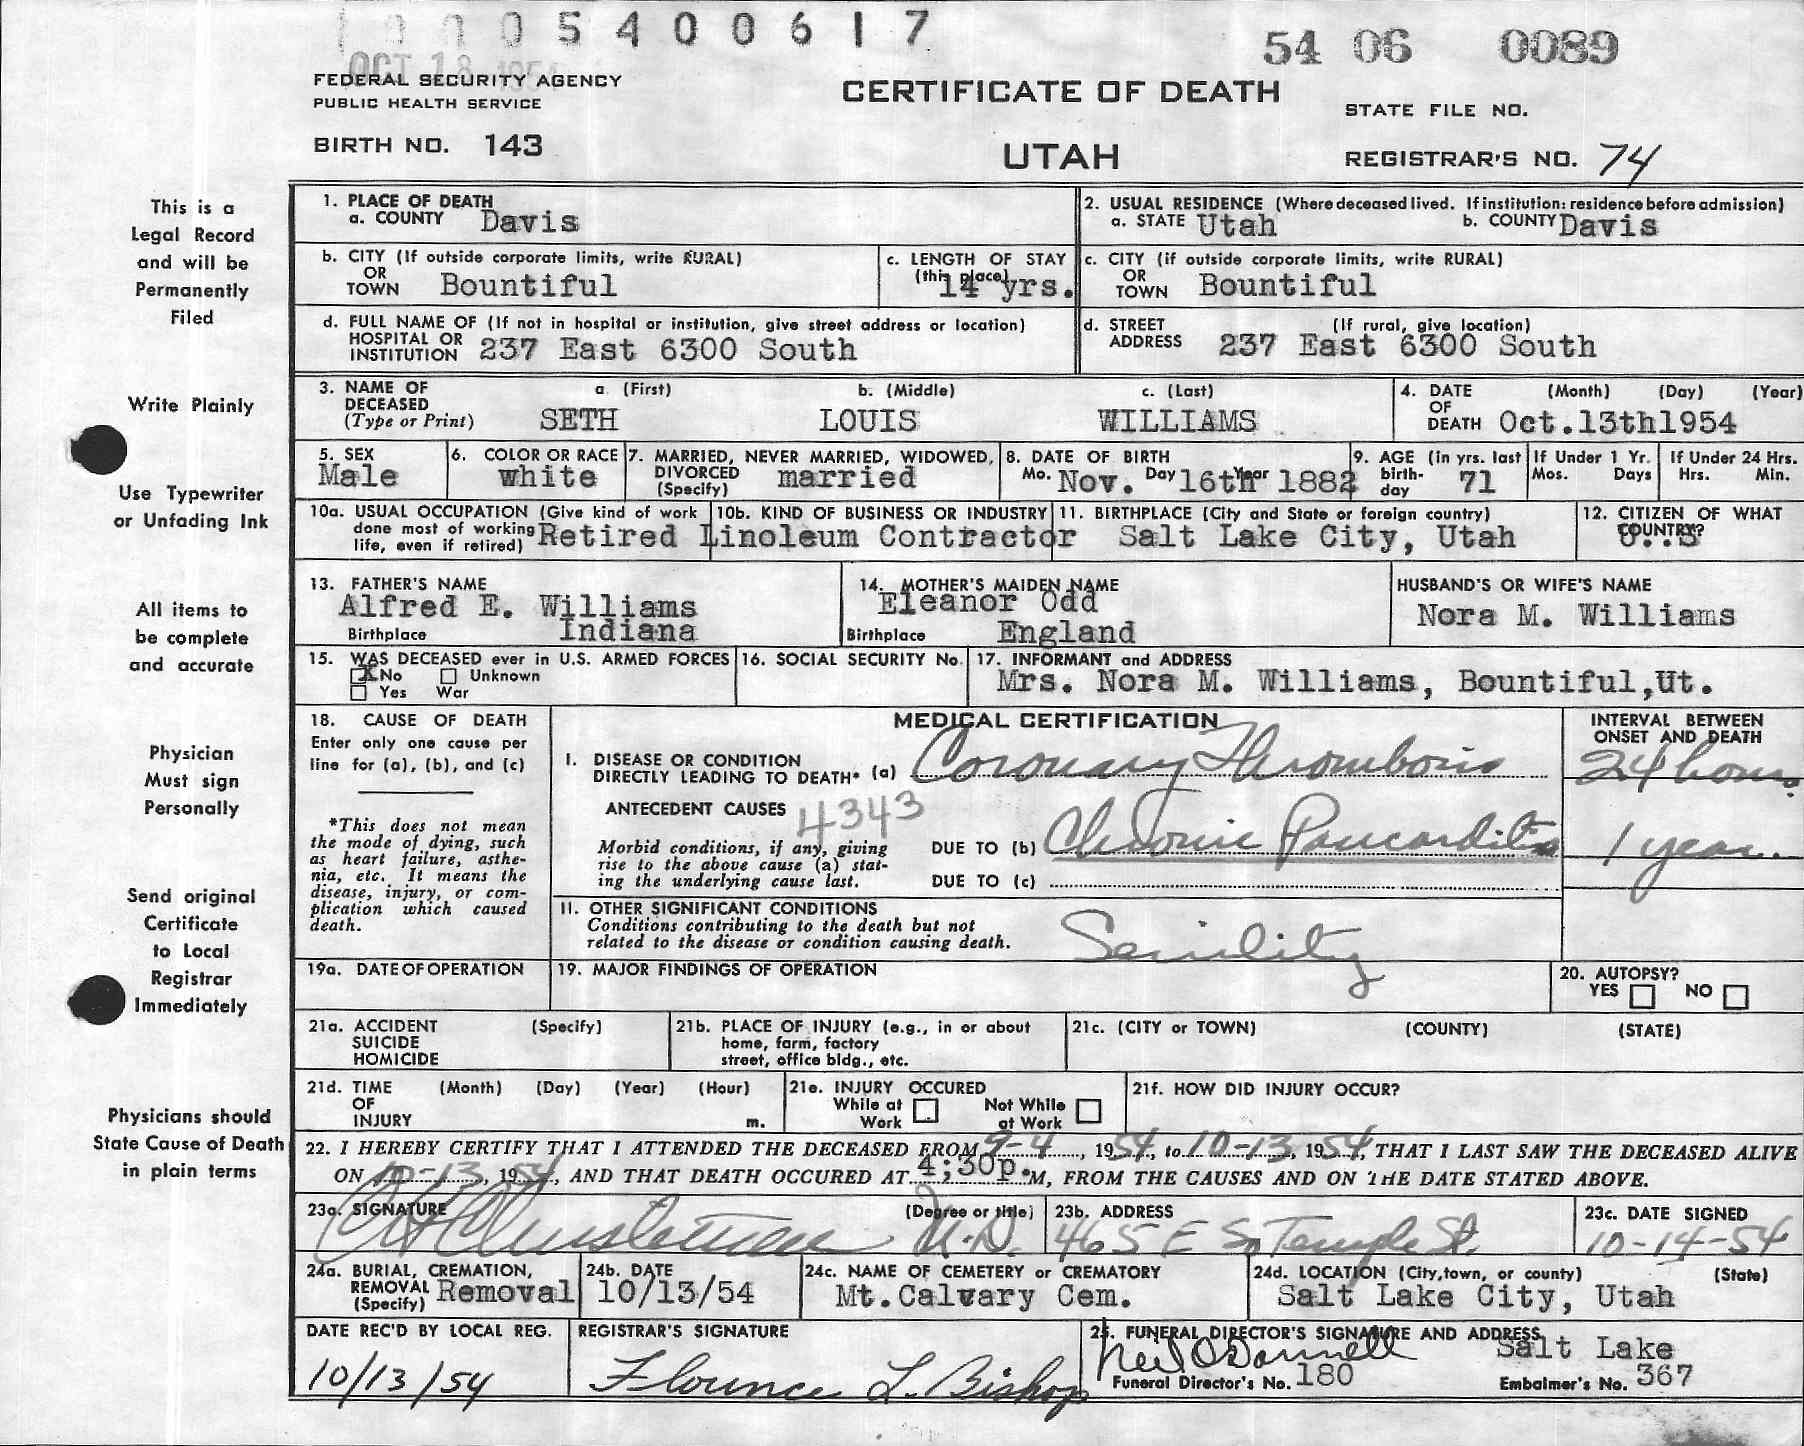 0 0 0 5 4 0 0 6 1 7
OCT 18 1954
54 06 0089
FEDERAL SECURITY AGENCY
PUBLIC HEALTH SERVICE
CERTIFICATE OF DEATH
STATE FILE NO.
BIRTH NO. 143
UTAH
REGISTRAR'S NO. 74
This is a
Legal Record
and will be
Permanently
Filed
Write Plainly
Use Typewriter
or Unfading Ink
All items to
be complete
and accurate
Physician
Must sign
Personally
Send original
Certificate
to Local
Registrar
Immediately
Physicians should
State Cause of Death
in plain terms
1. PLACE OF DEATH
a. COUNTY Davis
2. USUAL RESIDENCE (Where deceased lived. If institution: residence before admission)
a. STATE Utah b. COUNTY Davis
b. CITY (If outside corporate limits, write RURAL)
OR
TOWN Bountiful
c. LENGTH OF STAY
(this place) 14 yrs.
c. CITY (if outside corporate limits, write RURAL)
OR
TOWN Bountiful
d. FULL NAME OF (If not in hospital or institution, give street address or location)
HOSPITAL OR
INSTITUTION 237 East 6300 South
d. STREET (If rural, give location)
ADDRESS 237 East 6300 South
3. NAME OF a. (First) b. (Middle) c. (Last)
DECEASED
(Type or Print) SETH LOUIS WILLIAMS
4. DATE (Month) (Day) (Year)
OF
DEATH Oct.13th1954
5. SEX
Male
6. COLOR OR RACE
white
7. MARRIED, NEVER MARRIED, WIDOWED,
DIVORCED married
(Specify)
8. DATE OF BIRTH
Mo. Nov. Day 16th Year 1882
9. AGE (In yrs. last
birth-
day 71
If Under 1 Yr.
Mos. Days
If Under 24 Hrs.
Hrs. Min.
10a. USUAL OCCUPATION (Give kind of work
done most of working
life, even if retired) Retired Linoleum Contractor
10b. KIND OF BUSINESS OR INDUSTRY
11. BIRTHPLACE (City and State or foreign country)
Salt Lake City, Utah
12. CITIZEN OF WHAT
COUNTRY?
U..S
13. FATHER'S NAME
Alfred E. Williams
Birthplace Indiana
14. MOTHER'S MAIDEN NAME
Eleanor Odd
Birthplace England
HUSBAND'S OR WIFE'S NAME
Nora M. Williams
15. WAS DECEASED ever in U.S. ARMED FORCES
X No Unknown
Yes War
16. SOCIAL SECURITY No.
17. INFORMANT and ADDRESS
Mrs. Nora M. Williams, Bountiful,Ut.
18. CAUSE OF DEATH
Enter only one cause per
line for (a), (b), and (c)
*This does not mean
the mode of dying, such
as heart failure, asthe-
nia, etc. It means the
disease, injury, or com-
plication which caused
death.
MEDICAL CERTIFICATION
INTERVAL BETWEEN
ONSET AND DEATH
I. DISEASE OR CONDITION
DIRECTLY LEADING TO DEATH* (a) Coronary Thrombosis 24 hours.
ANTECEDENT CAUSES 4343
Morbid conditions, if any, giving
rise to the above cause (a) stat-
ing the underlying cause last.
DUE TO (b) Chronic Pancarditis 1 year.
DUE TO (c)
11. OTHER SIGNIFICANT CONDITIONS
Conditions contributing to the death but not
related to the disease or condition causing death.
Senility
19a. DATE OF OPERATION
19. MAJOR FINDINGS OF OPERATION
20. AUTOPSY?
YES NO
21a. ACCIDENT (Specify)
SUICIDE
HOMICIDE
21b. PLACE OF INJURY (e.g., in or about
home, farm, factory
street, office bldg., etc.
21c. (CITY or TOWN) (COUNTY) (STATE)
21d. TIME (Month) (Day) (Year) (Hour)
OF
INJURY m.
21e. INJURY OCCURED
While at Work
Not While at Work
21f. HOW DID INJURY OCCUR?
22. I HEREBY CERTIFY THAT I ATTENDED THE DECEASED FROM 9-4, 1954, to 10-13, 1954, THAT I LAST SAW THE DECEASED ALIVE
ON 10-13, 1954, AND THAT DEATH OCCURED AT 4;30p.M, FROM THE CAUSES AND ON THE DATE STATED ABOVE.
23a. SIGNATURE (Degree or title)
M.D.
23b. ADDRESS
465 E So Temple St.
23c. DATE SIGNED
10-14-54
24a. BURIAL, CREMATION,
REMOVAL Removal
(Specify)
24b. DATE
10/13/54
24c. NAME OF CEMETERY or CREMATORY
Mt.Calvary Cem.
24d. LOCATION (City, town, or county) (State)
Salt Lake City, Utah
DATE REC'D BY LOCAL REG.
10/13/54
REGISTRAR'S SIGNATURE
Florence L. Bishop
25. FUNERAL DIRECTOR'S SIGNATURE AND ADDRESS
Neil O'Donnell Salt Lake
Funeral Director's No. 180 Embalmer's No. 367